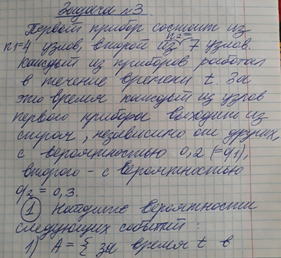 Задача №3
Первый прибор состоит из
n₁=4 узлов, второй из 7 узлов.
Каждый из приборов работал
в течение времени t. За
это время каждый из узлов
первого прибора выходит из
строя, независимо от других
с вероятностью 0,2 (=q₁),
второго - с вероятностью
q₂ = 0,3.
① Найдите вероятности
следующих событий:
1) A = { за время t в